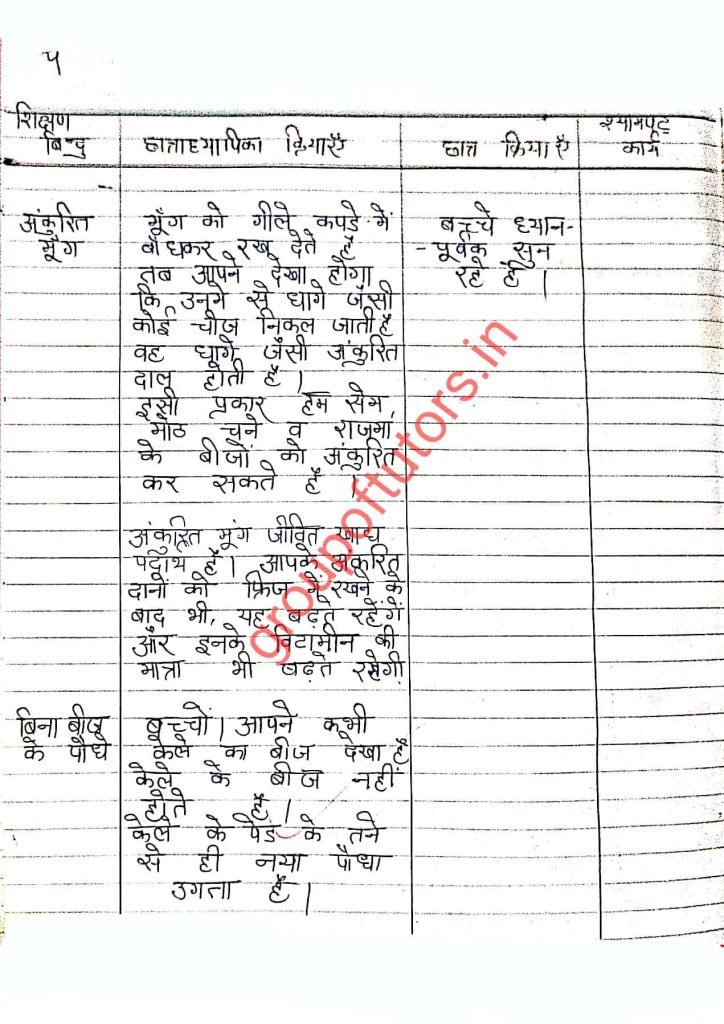 ५
शिक्षण बिन्दु
छात्राध्यापिका क्रियाएँ
छात्र क्रियाएँ
श्यामपट्ट कार्य
अंकुरित
मूँग
मूँग को गीले कपडे में
बाँधकर रख देते है
तब आपने देखा होगा
कि उनमे से धागे जैसी
कोई चीज निकल जाती है
वह धागे जैसी अंकुरित
दाल होती है।
इसी प्रकार हम सेम,
मोठ चने व राजमा
के बीजों को अंकुरित
कर सकते है।
बच्चे ध्यान-
-पूर्वक सुन
रहे है।
अंकुरित मूंग जीवित खाद्य
पदार्थ है। आपके अंकुरित
दानों को फ्रिज में रखने के
बाद भी, यह बढ़ते रहेगें
और इनके विटामीन की
मात्रा भी बढ़ते रहेगी
बिना बीज
के पौधे
बच्चों। आपने कभी
केले का बीज देखा है
केले के बीज नहीं
होते है।
केले के पेड़ के तने
से ही नया पौधा
उगता है।
groupoftutors.in